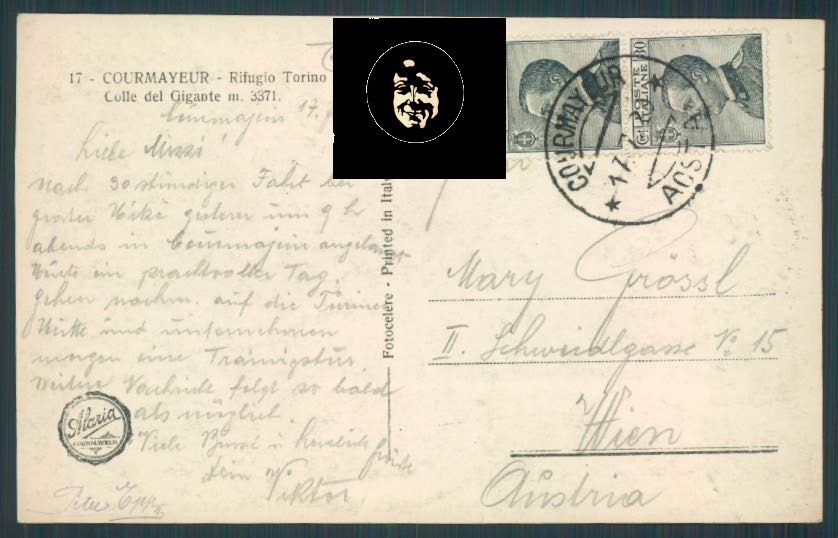 17 - COURMAYEUR - Rifugio Torino
Colle del Gigante m. 3371.
Courmajeur 17.
Liebe Mizzi!
Nach 30 stündiger Fahrt bei
großer Hitze gestern um 9 h
abends in Courmajeur angelangt
Heute ein prachtvoller Tag,
gehen nachm. auf die Turiner
Hütte und unternehmen
morgen eine Trainigstur
Weitere Nachricht folgt so bald
als möglich
Viele Bussi u herzlich Grüße
dein Viktor
Alaria
COURMAYEUR
Peter
Fotocelere - Printed in Italy
POSTE ITALIANE
Ct 30
COURMAYEUR
* 17.7.
AOSTA
Mary Grössl
II. Schweidlgasse No 15
Wien
Austria